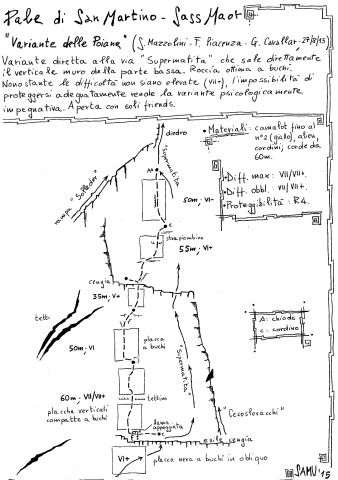 Pale di San Martino - Sass Maor
"Variante delle Poiane" (S. Mazzolini - F. Piacenza - G. Cavallar - 27/8/15)
Variante diretta alla via "Supermatita" che sale direttamente
il verticale muro della parte bassa. Roccia ottima a buchi.
Nonostante le difficoltà non siano elevate (VII+), l'impossibilità di
proteggersi adeguatamente rende la variante psicologicamente
impegnativa. Aperta con soli friends.
diedro
• Materiali: camalot fino al
n°2 (giallo), alien,
cordini; corde da
60m.
• Diff. max: VII/VII+.
• Diff. obbl.: VII/VII+.
• Proteggibilità: R4.
rampa "Solleder"
"Supermatita"
50m, VI-
c
strapiombino
55m, VI+
cengia
35m, V+
tetti
50m, VI
placca
a buchi
"Supermatita"
A: chiodo
c: cordino
60m, VII/VII+
placche verticali
compatte a buchi
tettino
"Cecoslovacchi"
lama
appoggiata
c
esile cengia
VI+
placca nera a buchi in obliquo
SAMU '15